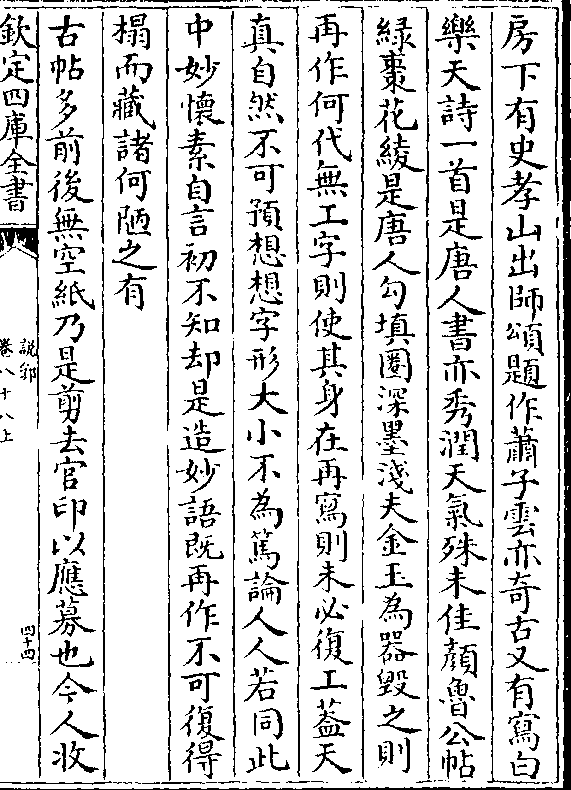 房下有史孝山出師頌題作蕭子雲亦奇古又有寫白
樂天詩一首是唐人書亦秀潤天氣殊未佳顔魯公帖
緑棗花綾是唐人勾填圈深墨淺夫金玉為器毀之則
再作何代無工字則使其身在再寫則未必復工蓋天
真自然不可預想想字形大小不為篤論人人若同此
中妙懷素自言初不知却是造妙語既再作不可復得
榻而藏諸何陋之有
古帖多前後無空紙乃是剪去官印以應募也今人收
欽定四庫全書
說郛
卷八十八上
四十四